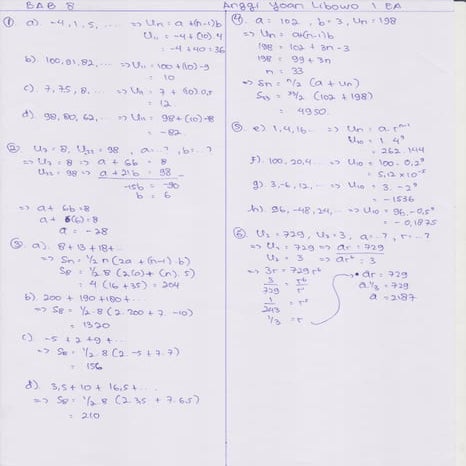 BAB 8
Anggi Yoan Libowo 1 EA
① a). -4, 1, 6, ... => Un = a + (n-1) b
U11 = -4 + (10).4
= -4 + 40 = 36
b). 100, 91, 82, ... => U11 = 100 + (10) -9
= 10
c). 7, 7.5, 8, ... => U11 = 7 + (10) 0,5
= 12
d). 98, 80, 62, ... => U11 = 98 + (10) -18
= -82
② U7 = 8, U22 = 98, a = ..?, b = ...?
=> U7 = 8 => a + 6b = 8
U22 = 98 => a + 21b = 98 -
-15b = -90
b = 6
=> a + 6b = 8
a + 6(6) = 8
a = -28
③ a). 8 + 13 + 18 + ...
=> Sn = 1/2 n (2a + (n-1) . b)
S8 = 1/2 . 8 (2(8) + (7) . 5)
= 4 (16 + 35) = 204
b) 200 + 190 + 180 + ...
=> S8 = 1/2 . 8 (2 . 200 + 7 . -10)
= 1320
c) -5 + 2 + 9 + ...
=> S8 = 1/2 . 8 (2 . -5 + 7 . 7)
= 156
d) 3,5 + 10 + 16,5 + ...
=> S8 = 1/2 . 8 (2 . 3,5 + 7 . 6,5)
= 210
④ a = 102, b = 3, Un = 198
=> Un = a + (n-1) b
198 = 102 + 3n - 3
198 = 99 + 3n
n = 33
=> Sn = n/2 (a + Un)
S33 = 33/2 (102 + 198)
= 4950
⑤ e) 1, 4, 16 ... => Un = a . r^n-1
U10 = 1 . 4^9
= 262.144
f). 100, 20, 4 ... => U10 = 100 . 0,2^9
= 5,12 x 10^-5
g). 3, -6, 12, ... => U10 = 3 . -2^9
= -1536
h). 96, -48, 24, ... => U10 = 96 . -0,5^9
= -0,1875
⑥ U2 = 729, U7 = 3, a = ..?, r = ..?
=> U2 = 729 => ar = 729
U7 = 3 => ar^6 = 3
=> 3r = 729 r^6
3/729 = r^6/r
1/243 = r^5
1/3 = r
• ar = 729
a . 1/3 = 729
a = 2187